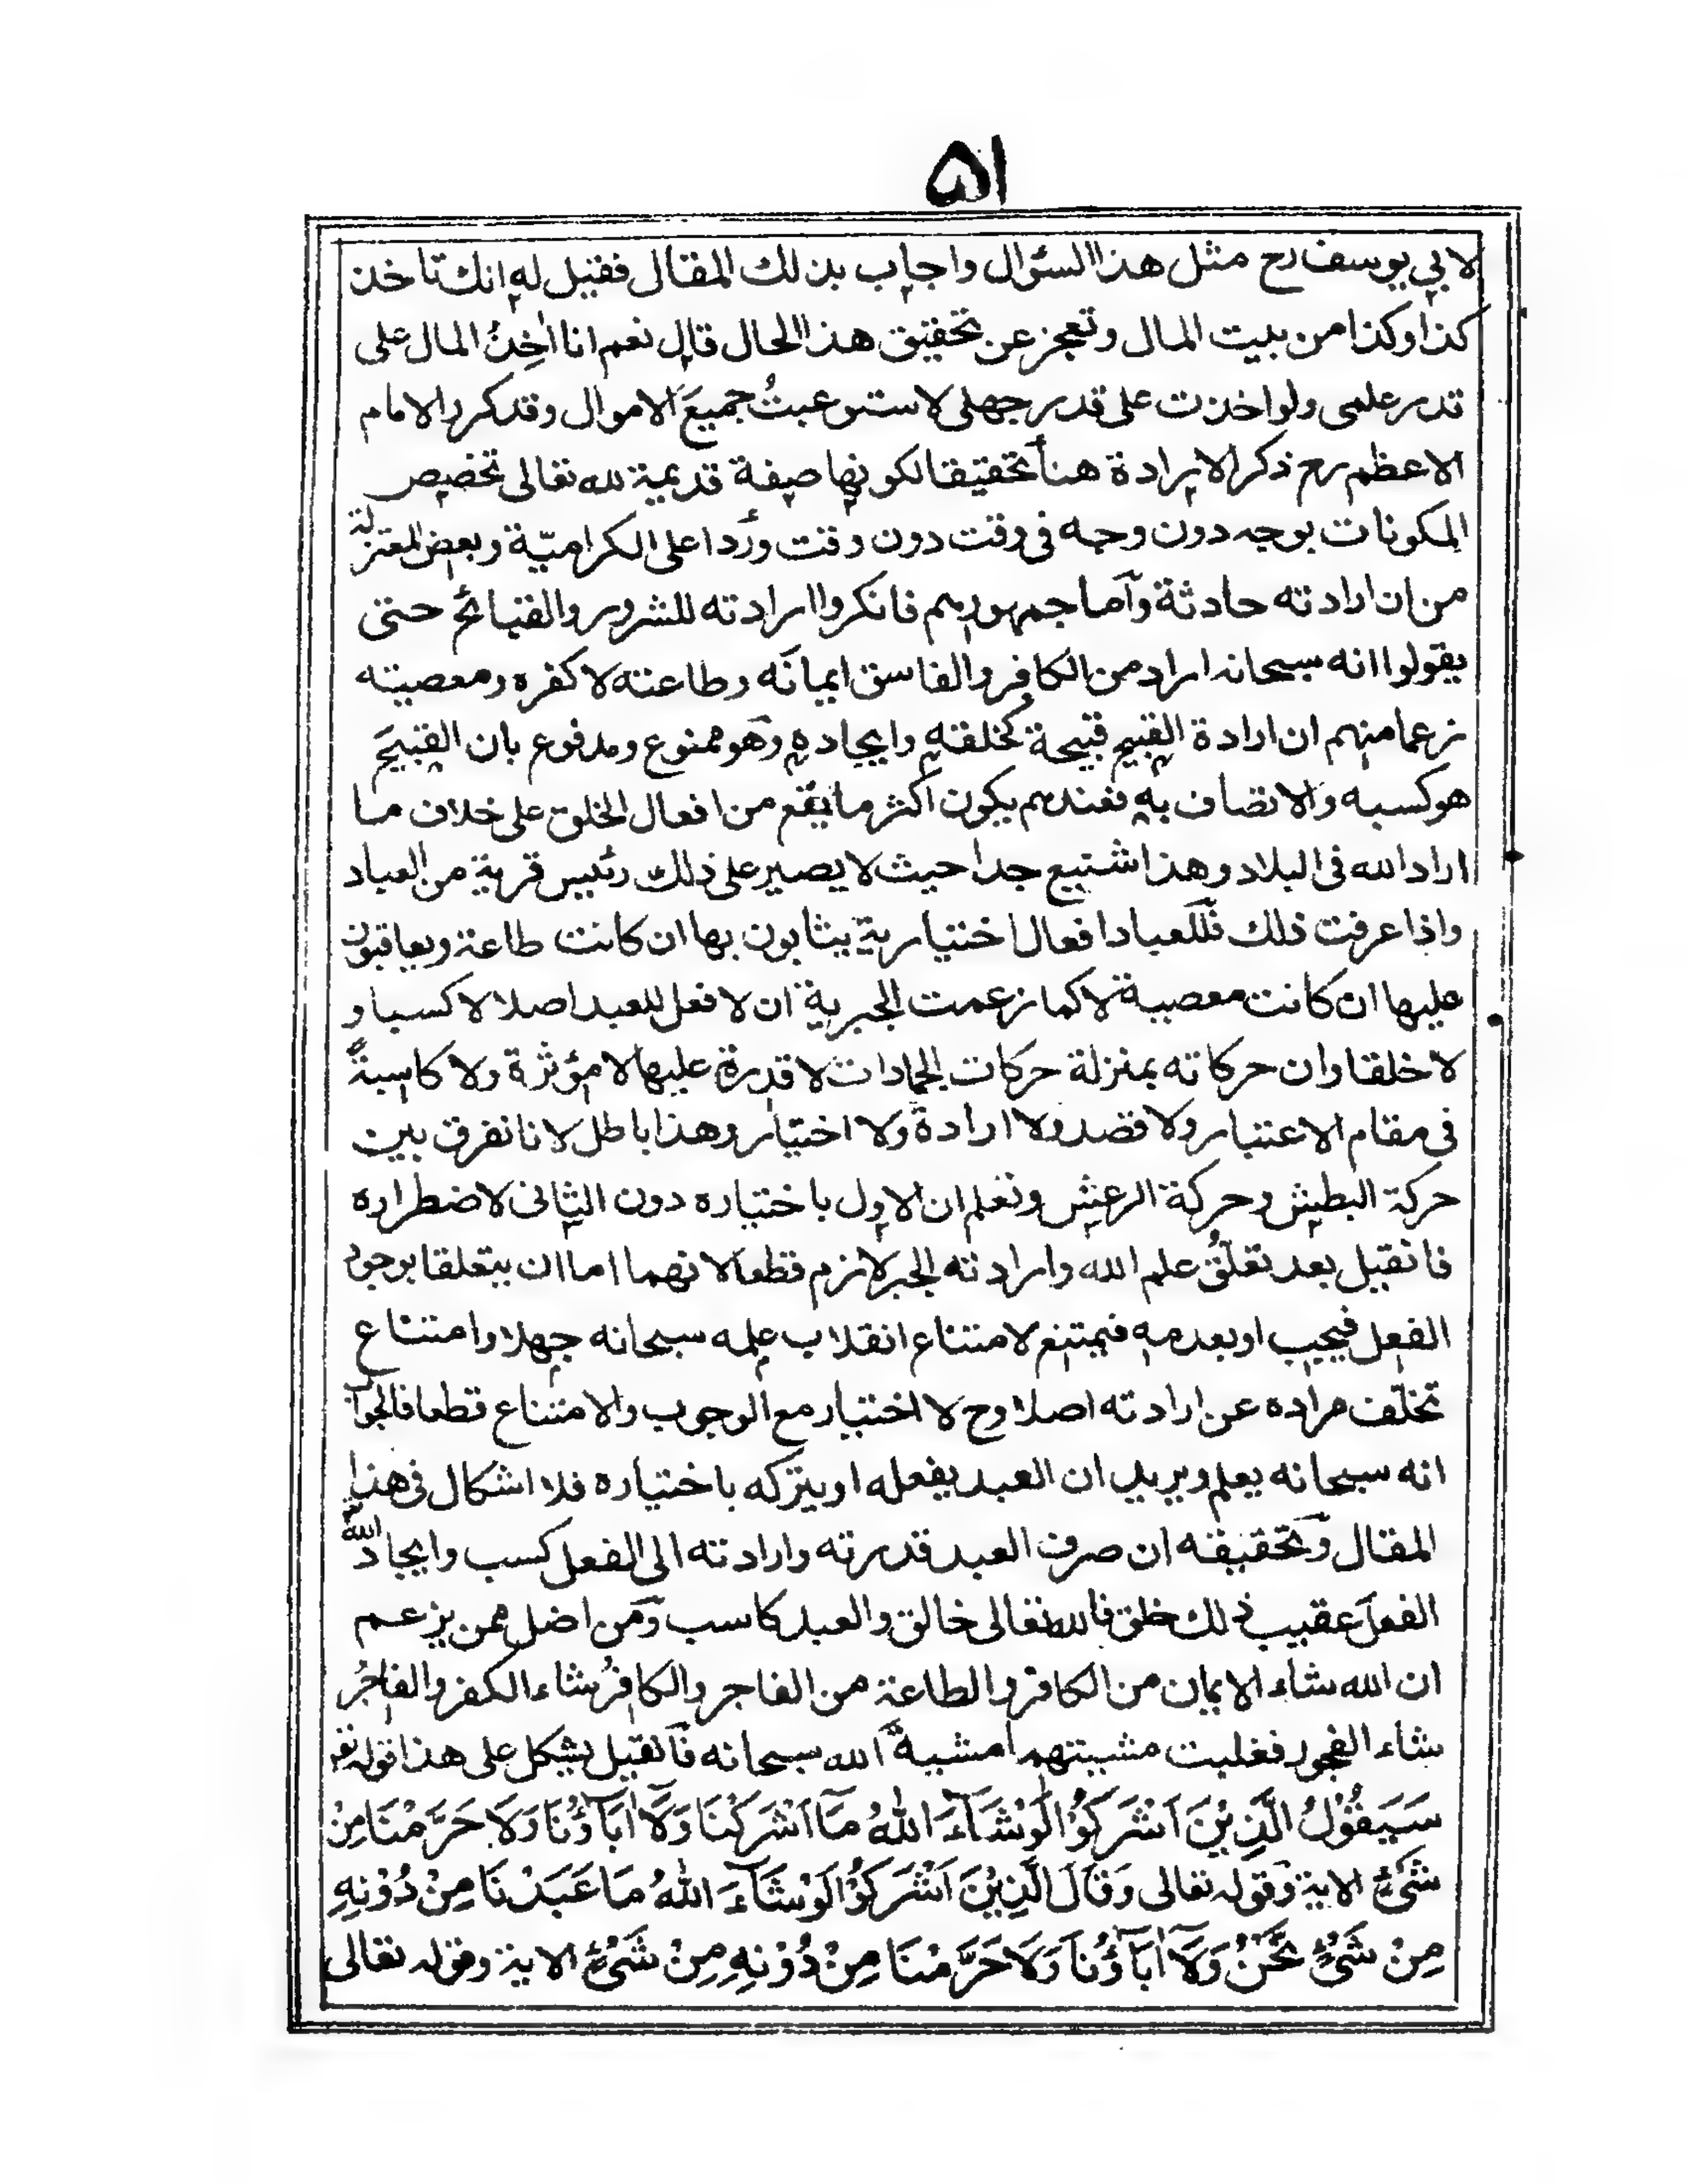 ۵۱
لابي يوسف رح مثل هذا السؤال واجاب بذلك المقال فقيل له انك تاخذ
كذا وكذا من بيت المال وتعجز عن تحقيق هذا الحال قال نعم انا اٰخِذُ المال على
قدر علمى ولو اخذت على قدر جهلى لاستوعبتُ جميعَ الاموال وقد كرر الامام
الاعظم رح ذكر الارادة هنا تحقيقا لكونها صفة قديمة لله تعالى تخصيص
المكونات بوجه دون وجه فى وقت دون وقت وردا على الكراميّة وبعض المعتزلة
من ان ارادته حادثة واما جمهورهم فانكروا ارادته للشرور والقبائح حتى
يقولوا انه سبحانه اراد من الكافر والفاسق ايمانه وطاعته لا كفره ومعصيته
زعما منهم ان ارادة القبيح قبيحة كخلقه وايجاده وهو ممنوع ومدفوع بان القبيحَ
هو كسبه والاتصاف به فعندهم يكون اكثر ما يقع من افعال الخلق على خلاف ما
اراد الله فى البلاد وهذا شنيع جدا حيث لا يصير على ذلك رئيس قرية من العباد
واذا عرفت ذلك فللعباد افعال اختيارية يثابون بها ان كانت طاعة ويعاقبون
عليها ان كانت معصية لا كما زعمت الجبرية ان لا فعل للعبد اصلا لا كسبا و
لا خلقا وان حركاته بمنزلة حركات الجمادات لا قدرة عليها لا مؤثرة ولا كاسبةً
فى مقام الاعتبار ولا قصد ولا ارادة ولا اختيار وهذا باطل لانا نفرق بين
حركة البطش وحركة الرعش ونعلم ان الاول باختياره دون الثانى لاضطراره
فان قيل بعد تعلّقُ علم الله وارادته الجبر لازم قطعا لانهما اما ان يتعلقا بوجود
الفعل فيجب او بعدمه فيمتنع لامتناع انقلاب علمه سبحانه جهلا وامتناع
تخلّف مراده عن ارادته اصلا وح لا اختيار مع الوجوب والامتناع قطعا فالجواب
انه سبحانه يعلم ويريد ان العبد يفعله او يتركه باختياره فلا اشكال فى هذا
المقال وتحقيقه ان صرف العبد قدرته وارادته الى الفعل كسب وايجاد الله
الفعلَ عقيب ذلك خلق فالله تعالى خالق والعبد كاسب ومن اضل ممن يزعم
ان الله شاء الايمان من الكافر والطاعة من الفاجر والكافرُ شاء الكفر والفاجُر
شاء الفجور فغلبت مشيتهما مشية الله سبحانه فان قيل يشكل على هذا قوله تع
سَيَقُوْلُ الَّذِيْنَ اَشْرَكُوْا لَوْ شَآءَ اللّٰهُ مَآ اَشْرَكْنَا وَلَآ اٰبَآؤُنَا وَلَا حَرَّمْنَا مِنْ
شَىْءٍ الاية وقوله تعالى وَقَالَ الَّذِيْنَ اَشْرَكُوْا لَوْ شَآءَ اللّٰهُ مَا عَبَدْنَا مِنْ دُوْنِهٖ
مِنْ شَىْءٍ نَّحْنُ وَلَآ اٰبَآؤُنَا وَلَا حَرَّمْنَا مِنْ دُوْنِهٖ مِنْ شَىْءٍ الاية وقوله تعالى